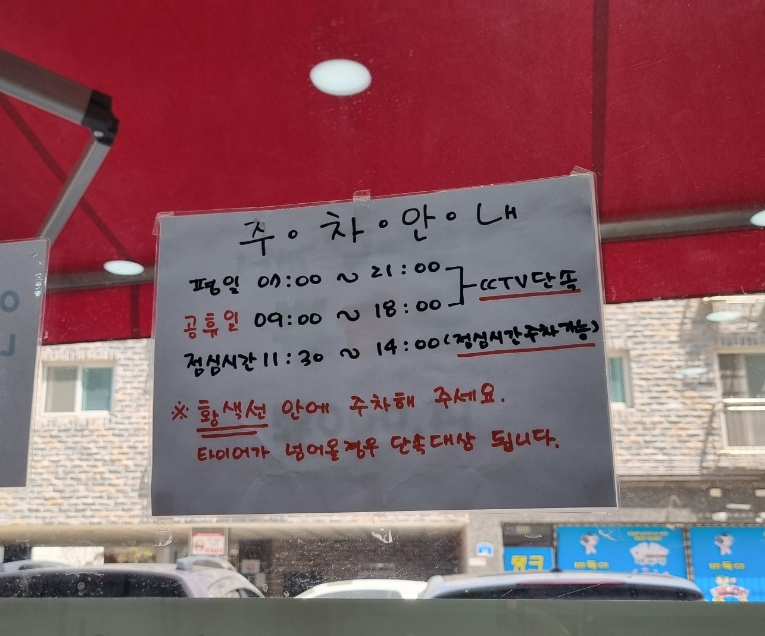 주 · 차 · 안 · 내
평일 07:00 ~ 21:00
공휴일 09:00 ~ 18:00
CCTV단속
점심시간 11:30 ~ 14:00 (점심시간주차가능)
※ 황색선 안에 주차해 주세요.
타이어가 넘어올경우 단속대상 됩니다.